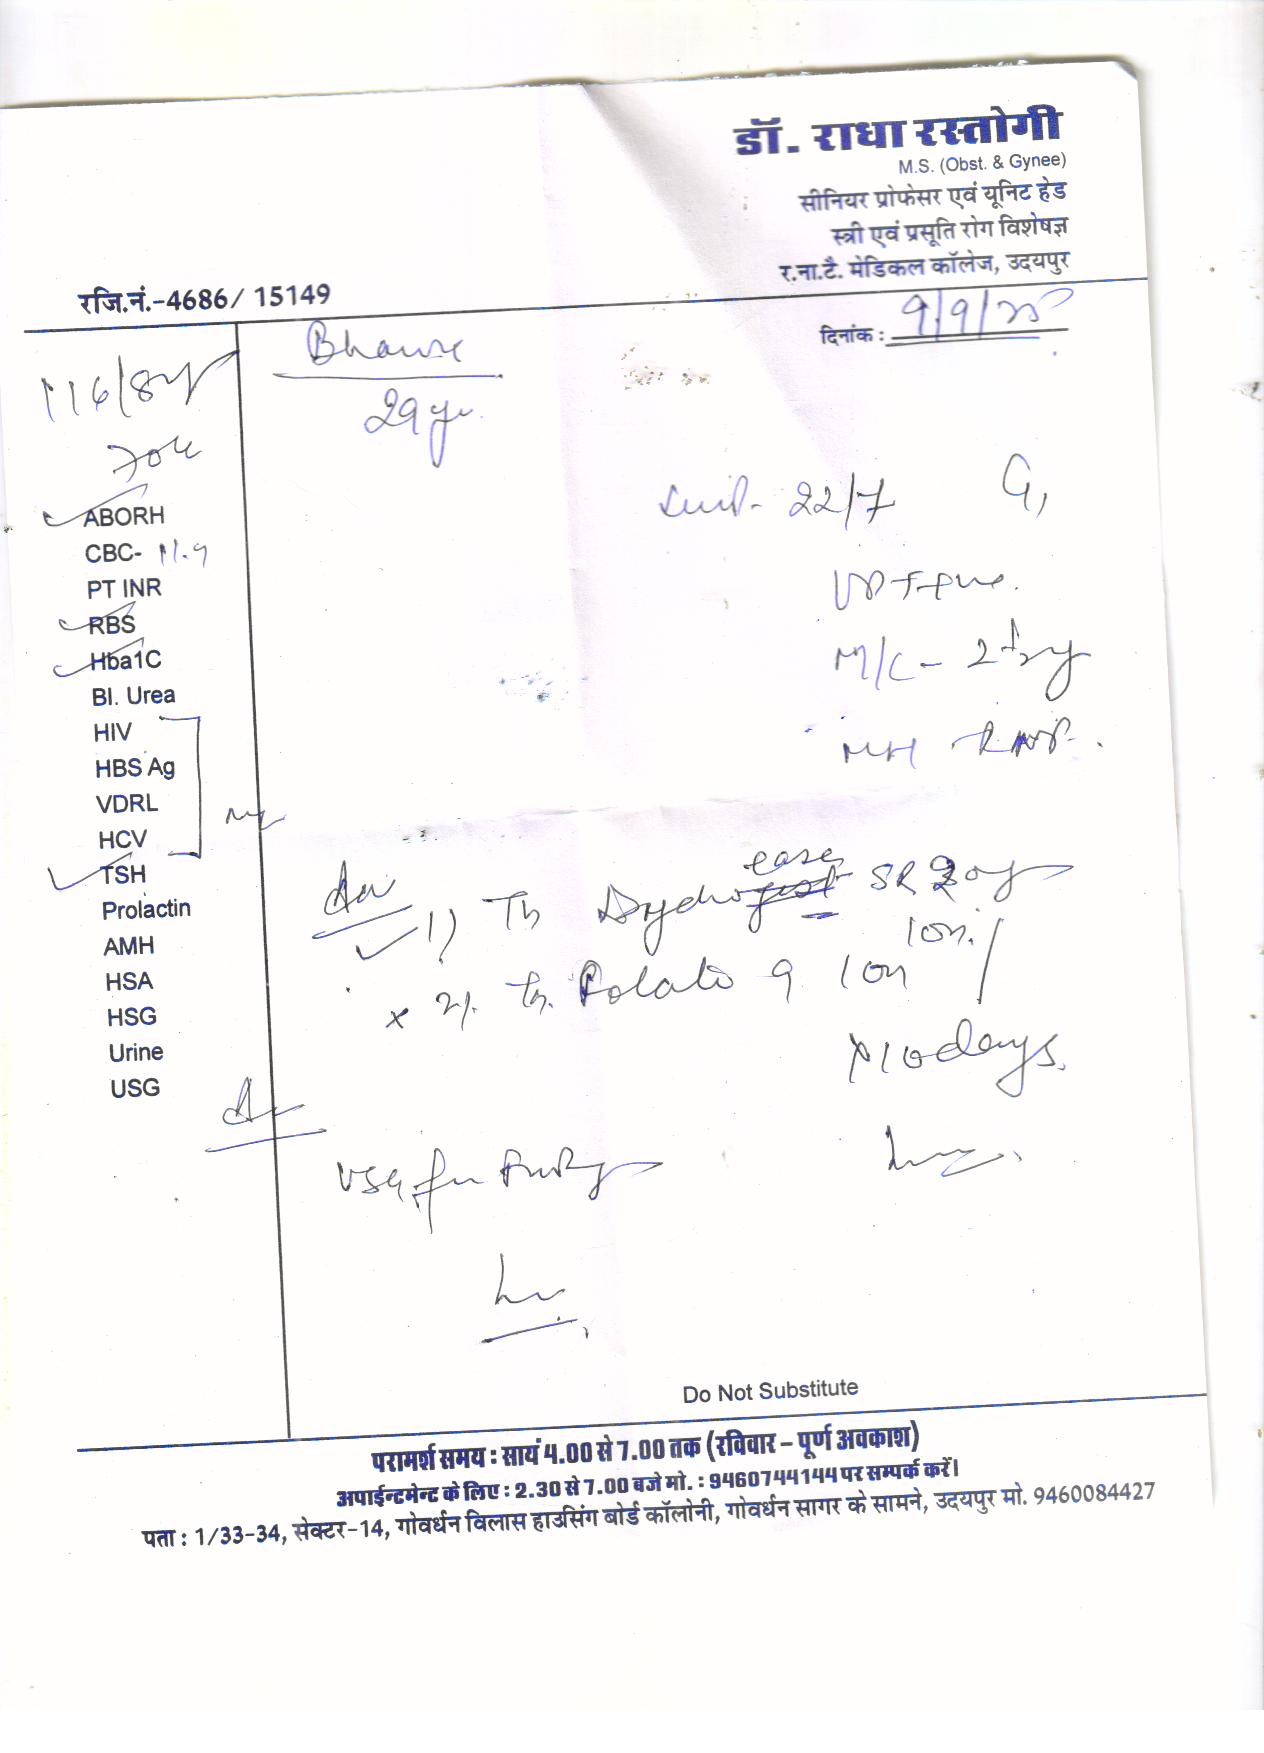 डॉ. राधा रस्तोगी
M.S. (Obst. & Gynee)
सीनियर प्रोफेसर एवं यूनिट हेड
स्त्री एवं प्रसूति रोग विशेषज्ञ
र.ना.टै. मेडिकल कॉलेज, उदयपुर
रजि.नं.-4686/ 15149
दिनांक : 9/9/25
29 yr.
116/84
22/7 G1
ABORH
CBC- 11.9
PT INR
RBS
Hba1C
Bl. Urea
HIV
HBS Ag
VDRL
HCV
TSH
Prolactin
AMH
HSA
HSG
Urine
USG
UPT +ve.
M/C - 2
MH
Adv
1) Tb Dydroease SR 20mg
1 on.
2) Tb. Folato 9 1 on
x 10 days.
USG for
Do Not Substitute
परामर्श समय : सायं 4.00 से 7.00 तक (रविवार – पूर्ण अवकाश)
अपाईन्टमेन्ट के लिए : 2.30 से 7.00 बजे मो. : 9460744144 पर सम्पर्क करें।
पता : 1/33-34, सेक्टर-14, गोवर्धन विलास हाउसिंग बोर्ड कॉलोनी, गोवर्धन सागर के सामने, उदयपुर मो. 9460084427